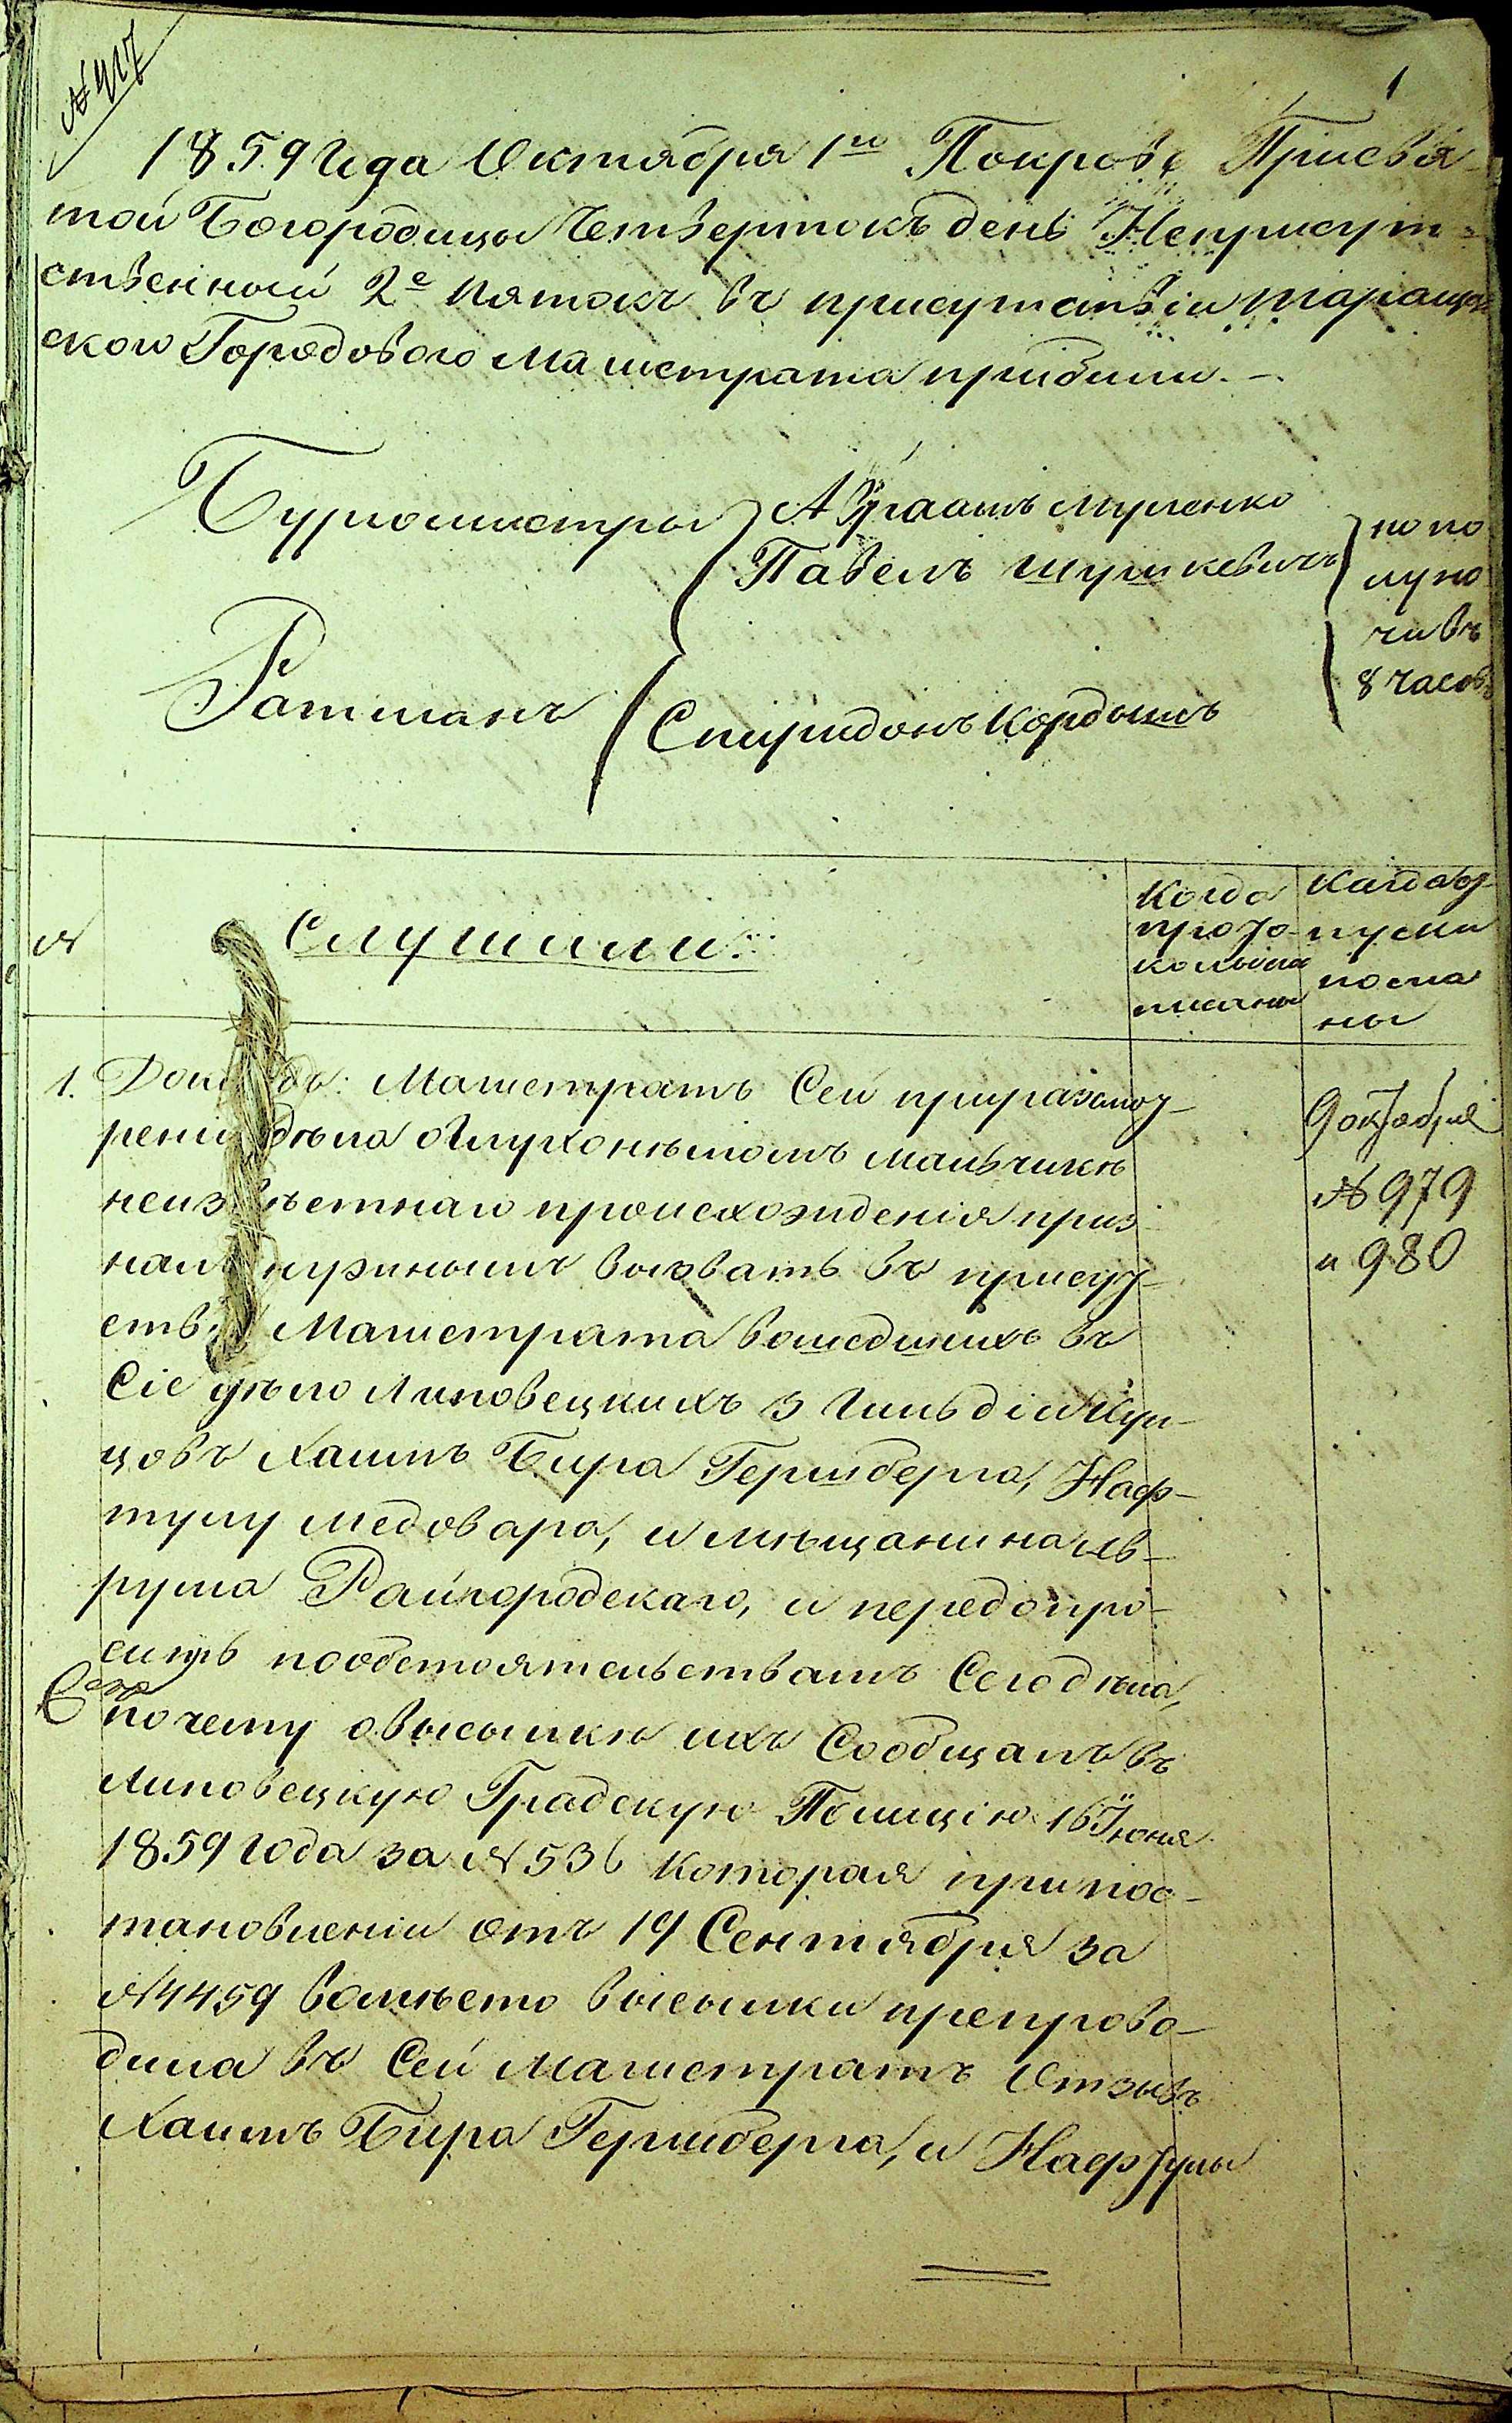 № 417
1
1859 Года Октября 1го Покровъ Присвя-
той Богородицы Четвертокъ день Неприсут-
ственный 2е Пятокъ въ присутствіи Таращан
ского Городового Магистрата прибыли.-
Бургомистры Абраамъ Муленко
Павелъ Шушкевичъ
Ратманъ Спиридонъ Кордышъ
по по
луно
чи въ
8 часовъ
№ Слушали:
Когда
прото-
колы
писаны
Когда от-
пуски
посла
ны
1. Докладъ: Магистратъ Сей приразсмот-
реніи дела оглухонемомъ мальчике
неизвѣстнаго происхожденія приз-
налъ нужнымъ вызвать въ присут-
ствіе Магистрата вошедшихъ въ
Сіе дѣло Липовецкихъ 3 Гильдіи Куп-
цовъ Хаимъ Бира Гершберга, Наф-
тулу Медовара, и мѣщанина
рума Райгородскаго, и передопро-
сить пообстоятельствамъ Сегодѣла,
почему овысылкѣ ихъ Сообщалъ въ
Липовецкую Градскую Полицію 16 Іюня
1859 года за №536 Которая припос-
тановленіи отъ 19 Сентября за
№4459 вомѣсто высылки препрово-
дила въ Сей Магистратъ Отзывъ
Хаимъ Бира Гершберга, и Нафтулы
9 октября
№ 979
и 980